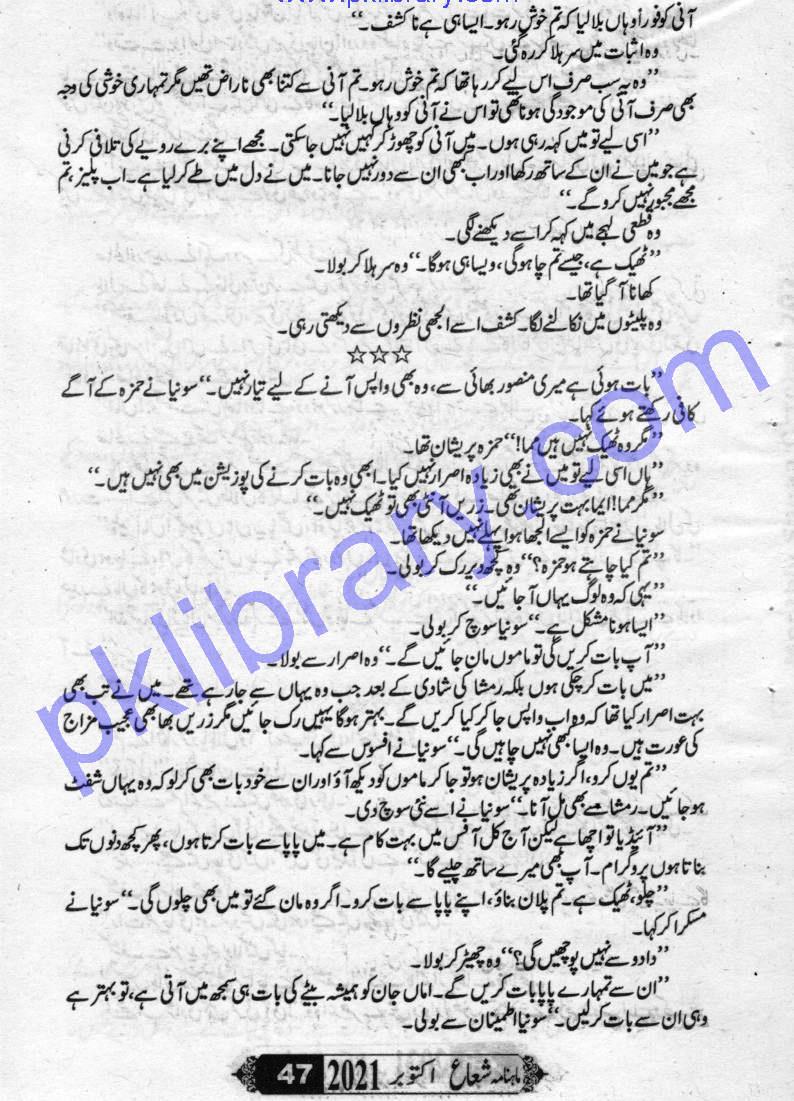 www.pklibrary.com
آنی کو فوراً وہاں بلا لیا کہ تم خوش رہو۔ ایسا ہی ہے نا کشف۔‘‘
وہ اثبات میں سر ہلا کر رہ گئی۔
’’وہ یہ سب صرف اس لیے کر رہا تھا کہ تم خوش رہو۔ تم آنی سے کتنا بھی ناراض تھیں مگر تمہاری خوشی کی وجہ
بھی صرف آنی کی موجودگی ہونا تھی تو اس نے آنی کو وہاں بلا لیا۔‘‘
’’اسی لیے تو میں کہہ رہی ہوں۔ میں آنی کو چھوڑ کر کہیں نہیں جا سکتی۔ مجھے اپنے برے رویے کی تلافی کرنی
ہے جو میں نے ان کے ساتھ رکھا اور اب کبھی ان سے دور نہیں جانا۔ میں نے دل میں طے کر لیا ہے۔ اب پلیز، تم
مجھے مجبور نہیں کرو گے۔‘‘
وہ قطعی لہجے میں کہہ کر اسے دیکھنے لگی۔
’’ٹھیک ہے، جیسے تم چاہو گی، ویسا ہی ہوگا۔‘‘ وہ سر ہلا کر بولا۔
کھانا آ گیا تھا۔
وہ پلیٹوں میں نکالنے لگا۔ کشف اسے الجھی نظروں سے دیکھتی رہی۔
☆☆☆
’’بات ہوئی ہے میری منصور بھائی سے، وہ بھی واپس آنے کے لیے تیار نہیں۔‘‘ سونیا نے حمزہ کے آگے
کافی رکھتے ہوئے کہا۔
’’مگر وہ ٹھیک نہیں ہیں مما!‘‘ حمزہ پریشان تھا۔
’’ہاں اسی لیے تو میں نے بھی زیادہ اصرار نہیں کیا۔ ابھی وہ بات کرنے کی پوزیشن میں بھی نہیں ہیں۔‘‘
’’مگر مما! ایما بہت پریشان تھی۔ زریں آنٹی بھی تو ٹھیک نہیں۔‘‘
سونیا نے حمزہ کو ایسے الجھا ہوا پہلے نہیں دیکھا تھا۔
’’تم کیا چاہتے ہو حمزہ؟‘‘ وہ کچھ دیر رک کر بولی۔
’’یہی کہ وہ لوگ یہاں آ جائیں۔‘‘
’’ایسا ہونا مشکل ہے۔‘‘ سونیا سوچ کر بولی۔
’’آپ بات کریں گی تو ماموں مان جائیں گے۔‘‘ وہ اصرار سے بولا۔
’’میں بات کر چکی ہوں بلکہ رمشا کی شادی کے بعد جب وہ یہاں سے جا رہے تھے۔ میں نے تب بھی
بہت اصرار کیا تھا کہ وہ اب واپس جا کر کیا کریں گے۔ بہتر ہوگا یہیں رک جائیں مگر زریں بھابھی عجیب مزاج
کی عورت ہیں۔ وہ ایسا بھی نہیں چاہیں گی۔‘‘ سونیا نے افسوس سے کہا۔
’’تم یوں کرو، اگر زیادہ پریشان ہو تو جا کر ماموں کو دیکھ آؤ اور ان سے خود بات بھی کر لو کہ وہ یہاں شفٹ
ہو جائیں۔ رمشا سے بھی مل آنا۔‘‘ سونیا نے اسے نئی سوچ دی۔
’’آئیڈیا تو اچھا ہے لیکن آج کل آفس میں بہت کام ہے۔ میں پاپا سے بات کرتا ہوں، پھر کچھ دنوں تک
بناتا ہوں پروگرام۔ آپ بھی میرے ساتھ چلیے گا۔‘‘
’’چلو، ٹھیک ہے۔ تم پلان بناؤ، اپنے پاپا سے بات کرو۔ اگر وہ مان گئے تو میں بھی چلوں گی۔‘‘ سونیا نے
مسکرا کر کہا۔
’’دادو سے نہیں پوچھیں گی؟‘‘ وہ چھیڑ کر بولا۔
’’ان سے تمہارے پاپا بات کریں گے۔ اماں جان کو ہمیشہ بیٹے کی بات ہی سمجھ میں آتی ہے، تو بہتر ہے
وہی ان سے بات کر لیں۔‘‘ سونیا اطمینان سے بولی۔
ماہنامہ شعاع اکتوبر 2021 47
pklibrary.com